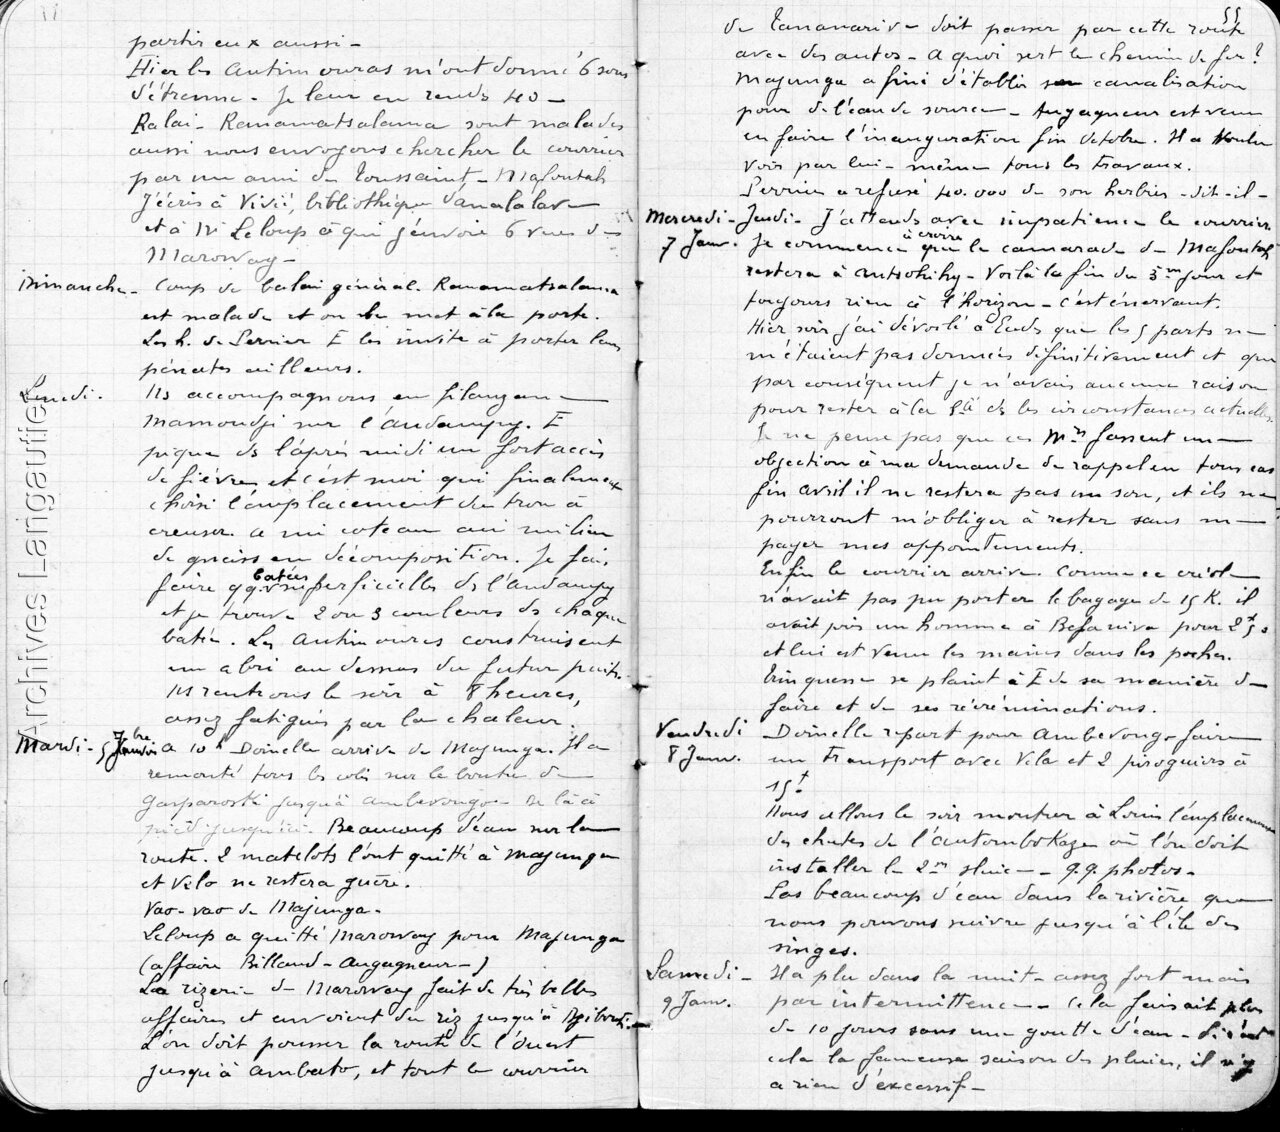 partir eux aussi -
Hier les Antimouras m'ont donné 6 sous
d'étrenne - Je leur en rends 40 -
Ralai - Ramamatsalama sont malades
aussi nous envoyons chercher le courrier
par un ami de Toussaint - Mafoutah
J'écris à Vivié, bibliothèque d'Analalava
et à Mr Leloup à qui j'envoie 6 vues de
Marovoay -
Dimanche - Coup de balai général. Ramamatsalama
est malade et on le met à la porte.
Les h. de Perrier E les invite à porter leurs
pénates ailleurs.
Lundi. Ns accompagnons en filanzane
Mamoudji sur l'Andampy. E
pique ds l'après midi un fort accès
de fièvre et c'est moi qui finalement
choisi l'emplacement du trou à
creuser a mi coteau au milieu
de gneiss en décomposition. Je fais
faire qq. batées superficielles ds l'Andampy
et je trouve 2 ou 3 couleurs ds chaque
batée. Les Antimouras construisent
un abri au dessus du futur puits.
Ns rentrons le soir à 8 heures,
assez fatigués par la chaleur.
Mardi - 5 Janvier A 10h Doinelle arrive de Majunga. Il a
remonté tous les colis sur le boutre de
Gasparoski jusqu'à Ambevongo - de là à
pied jusqu'ici. Beaucoup d'eau sur la
route. 2 matelots l'ont quitté à Majunga
et Velo ne restera guère.
Vao-vao de Majunga -
Leloup a quitté Marovoay pour Majunga
(affaire Billaud - Augagneur -)
La rizerie de Marovoay fait de très belles
affaires et envoient du riz jusqu'à Djibouti.
L'on doit pousser la route de l'ouest
jusqu'à Ambato, et tout le courrier
55
de Tananarive doit passer par cette route
avec des autos - A quoi sert le chemin de fer ?
Majunga a fini d'établir sa canalisation
pour de l'eau de source - Augagneur est venu
en faire l'inauguration fin Octobre. Il a voulu
voir par lui-même tous les travaux.
Perrier a refusé 40.000 de son herbier - dit-il -
Mercredi - Jeudi - J'attends avec impatience le courrier
7 Janv. Je commence à croire que le camarade de Mafoutah
restera à Antsohihy - Voilà la fin du 3me jour et
toujours rien à l'horizon - c'est énervant.
Hier soir j'ai dévoilé à Euds que les 5 parts ne
m'étaient pas données définitivement et que
par conséquent je n'avais aucune raison
pour rester à la Sté ds les circonstances actuelles.
Je ne pense pas que ces Mrs fassent une
objection à ma demande de rappel en tous cas
fin Avril il ne restera pas un sou, et ils ne
pourront m'obliger à rester sans me
payer mes appointements.
Enfin le courrier arrive. Comme ce créole
n'avait pas pu porter le bagage de 15 K. il
avait pris un homme à Befariva pour 2f50
et lui est venu les mains dans les poches.
Trinquesse se plaint à E de sa manière de
faire et de ses récriminations.
Vendredi Doinelle repart pour Ambevongo faire
8 Janv. un transport avec Vela et 2 piroguiers à
15f
Nous allons le soir montrer à Louis l'emplacement
des chutes de l'Antombokazo où l'on doit
installer le 2me sluice - qq. photos -
Pas beaucoup d'eau dans la rivière que
nous pouvons suivre jusqu'à l'île des
singes.
Samedi - Il a plu dans la nuit - assez fort mais
9 Janv. par intermittence - Cela faisait plus
de 10 jours sans une goutte d'eau - Si c'est
cela la fameuse saison des pluies, il n'y
a rien d'excessif -
Archives Langautier